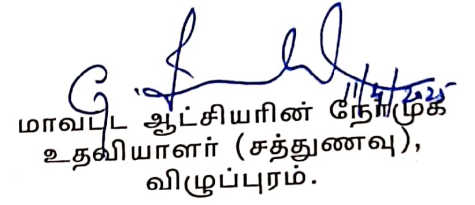 11/4/2025
மாவட்ட ஆட்சியரின் நேர்முக
உதவியாளர் (சத்துணவு),
விழுப்புரம்.